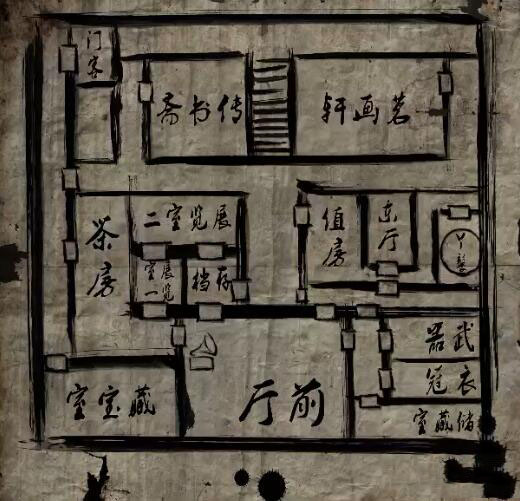 门客
传书斋
茗画轩
茶房
展览室二
展览室一
存档
值房
东厅
丫鬟
武器
衣冠
储藏室
前厅
藏宝室